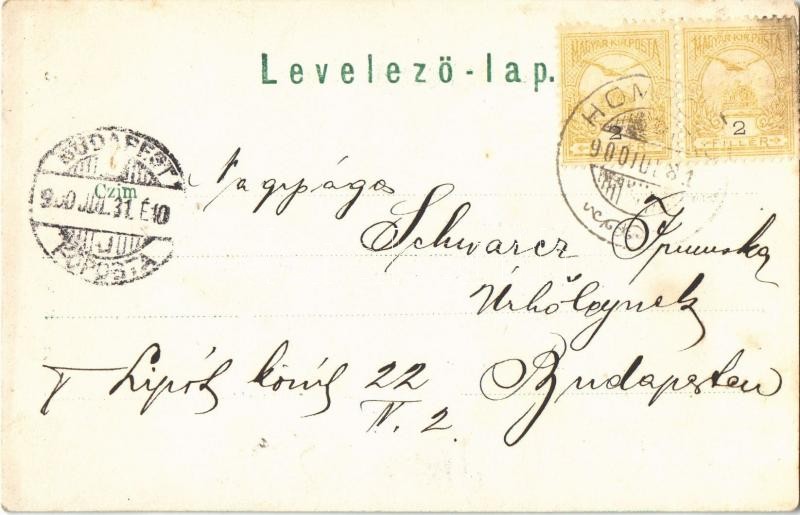 Levelező-lap.
MAGYAR KIR. POSTA MAGYAR KIR. POSTA
2 2
FILLÉR FILLÉR
900 JUL 31
BUDAPEST
Czim
900 JUL. 31. É10
FŐPOSTA
Nagyságos
Schwarcz Irmuska
Úrhölgynek
Lipót körút 22 Budapesten
IV. 2.